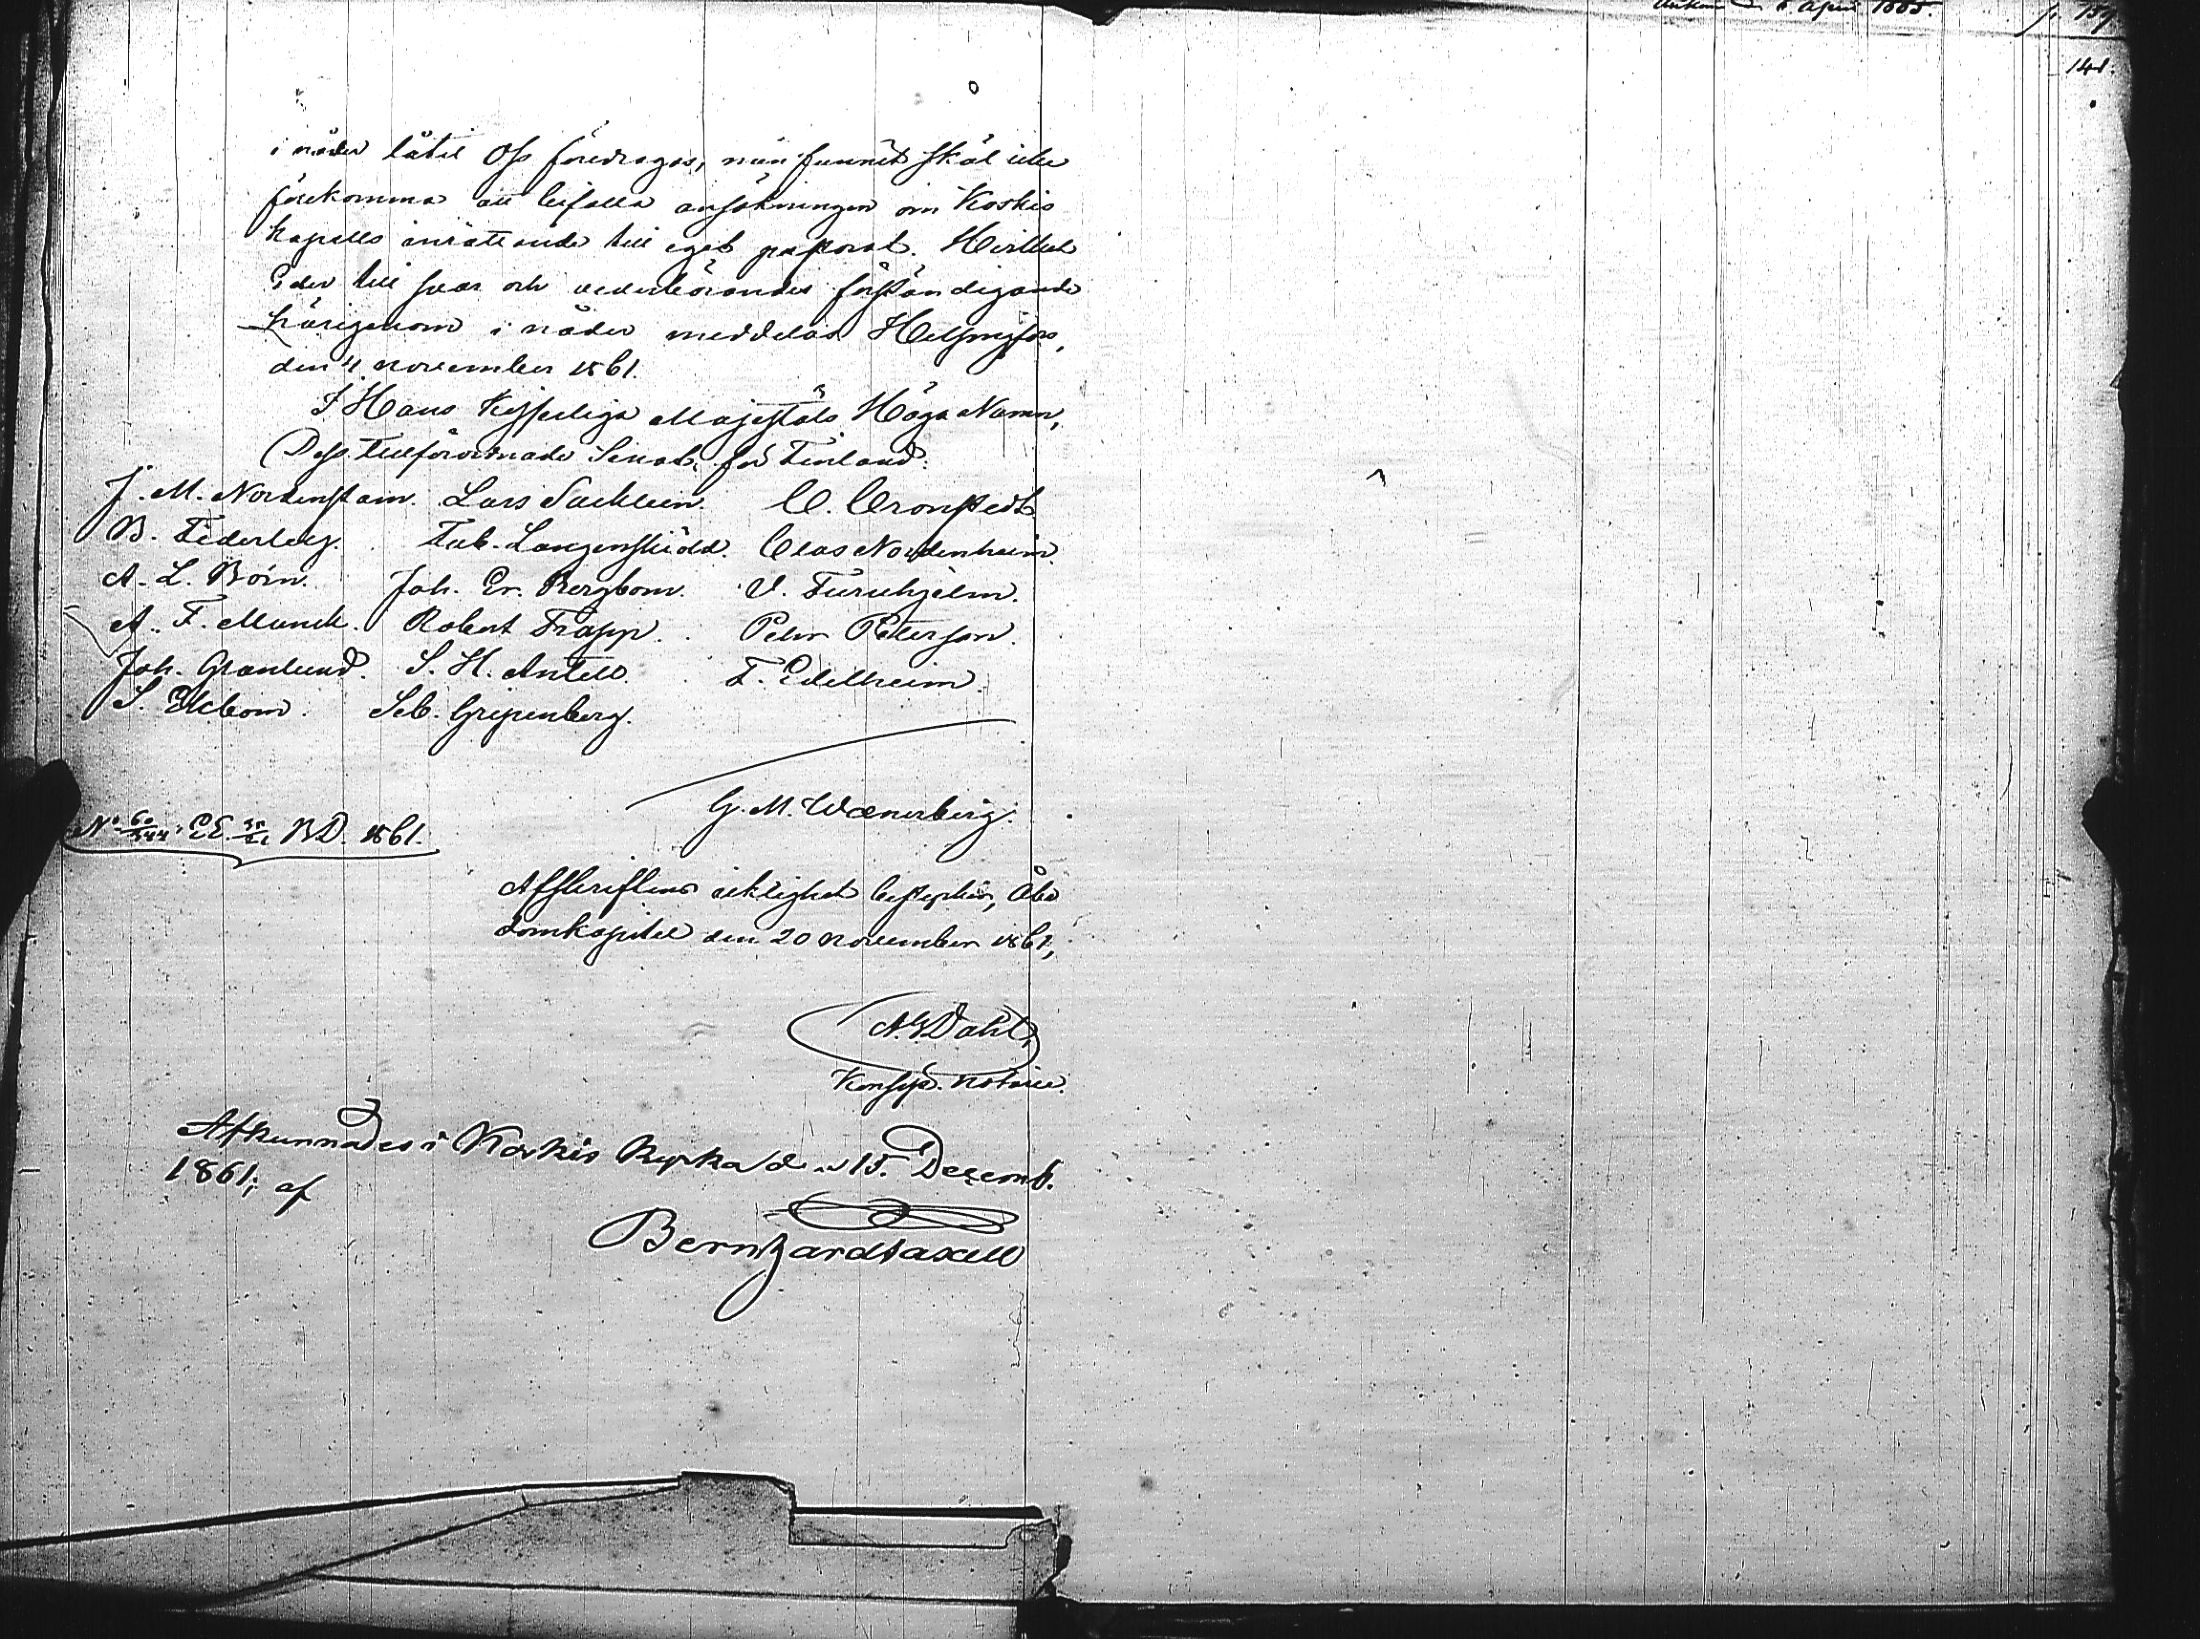 April 1885. p. 139
141.
i nåder låtit Oss föredragas, nu funnit skäl icke
förekomma att bifalla ansökningen om Koskis
kapells inrättande till eget pastorat. Hvilket
Eder till svar och vederbörandes förständigande
härigenom i nåder meddelas. Helsingfors,
den 4 november 1861.
I Hans Kejserliga Majestäts Höga Namn,
Dess tillförordnade Senat för Finland:
J. M. Nordenstam. Lars Sacklein. C. Cronstedt.
B. Federley. Fab. Langenskiöld. Clas Nordenheim.
A. L. Born. Joh. Er. Bergbom. V. Furuhjelm.
A. F. Munck. Robert Trapp. Petter Peterson.
Joh. Granlund. S. H. Antell. F. Edelheim.
S. Ekbom. Seb. Gripenberg.
G. M. Wænerberg.
No 60/544 EE. BD. 1861.
Afskriftens riktighet bestyrker, Åbo
domkapitel den 20 november 1861,
A. G. Dahl,
Konsist. notarie.
Afkunnades i Koskis kyrka den 15. Decemb.
1861; af
Bernhard Taxell